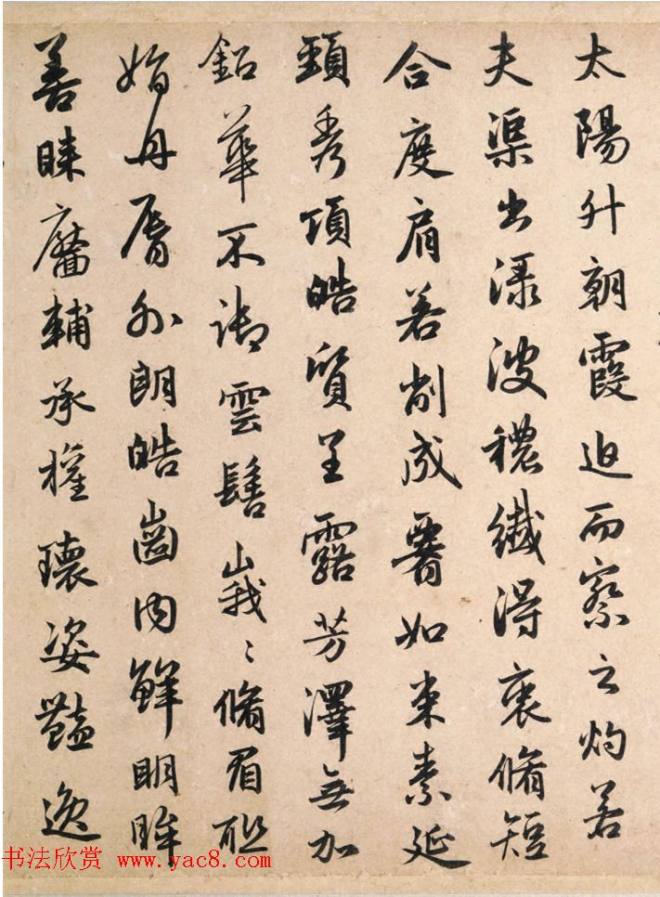 太陽升朝霞迫而察之灼若
夫渠出渌波穠纖淂衷脩短
合度肩若削成署如束素延
頸秀項皓質呈露芳澤無加
鉛華不御雲髻峩〻脩眉联
娟丹脣外朗皓齒内鮮明眸
善睐靨輔承權瓌姿豔逸
书法欣赏 www.yac8.com